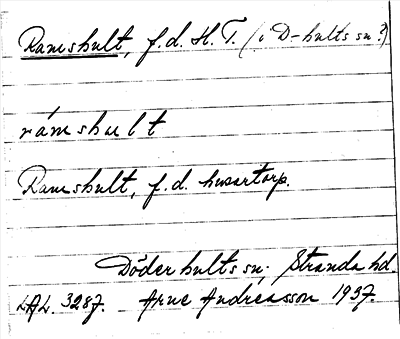 Ramshult, f.d. H.T. (i D-hults sn?)
rámshult
Ramshult, f.d. husartorp.
Döderhults sn. Stranda hd.
LAL. 3287. Arne Andreasson 1937.